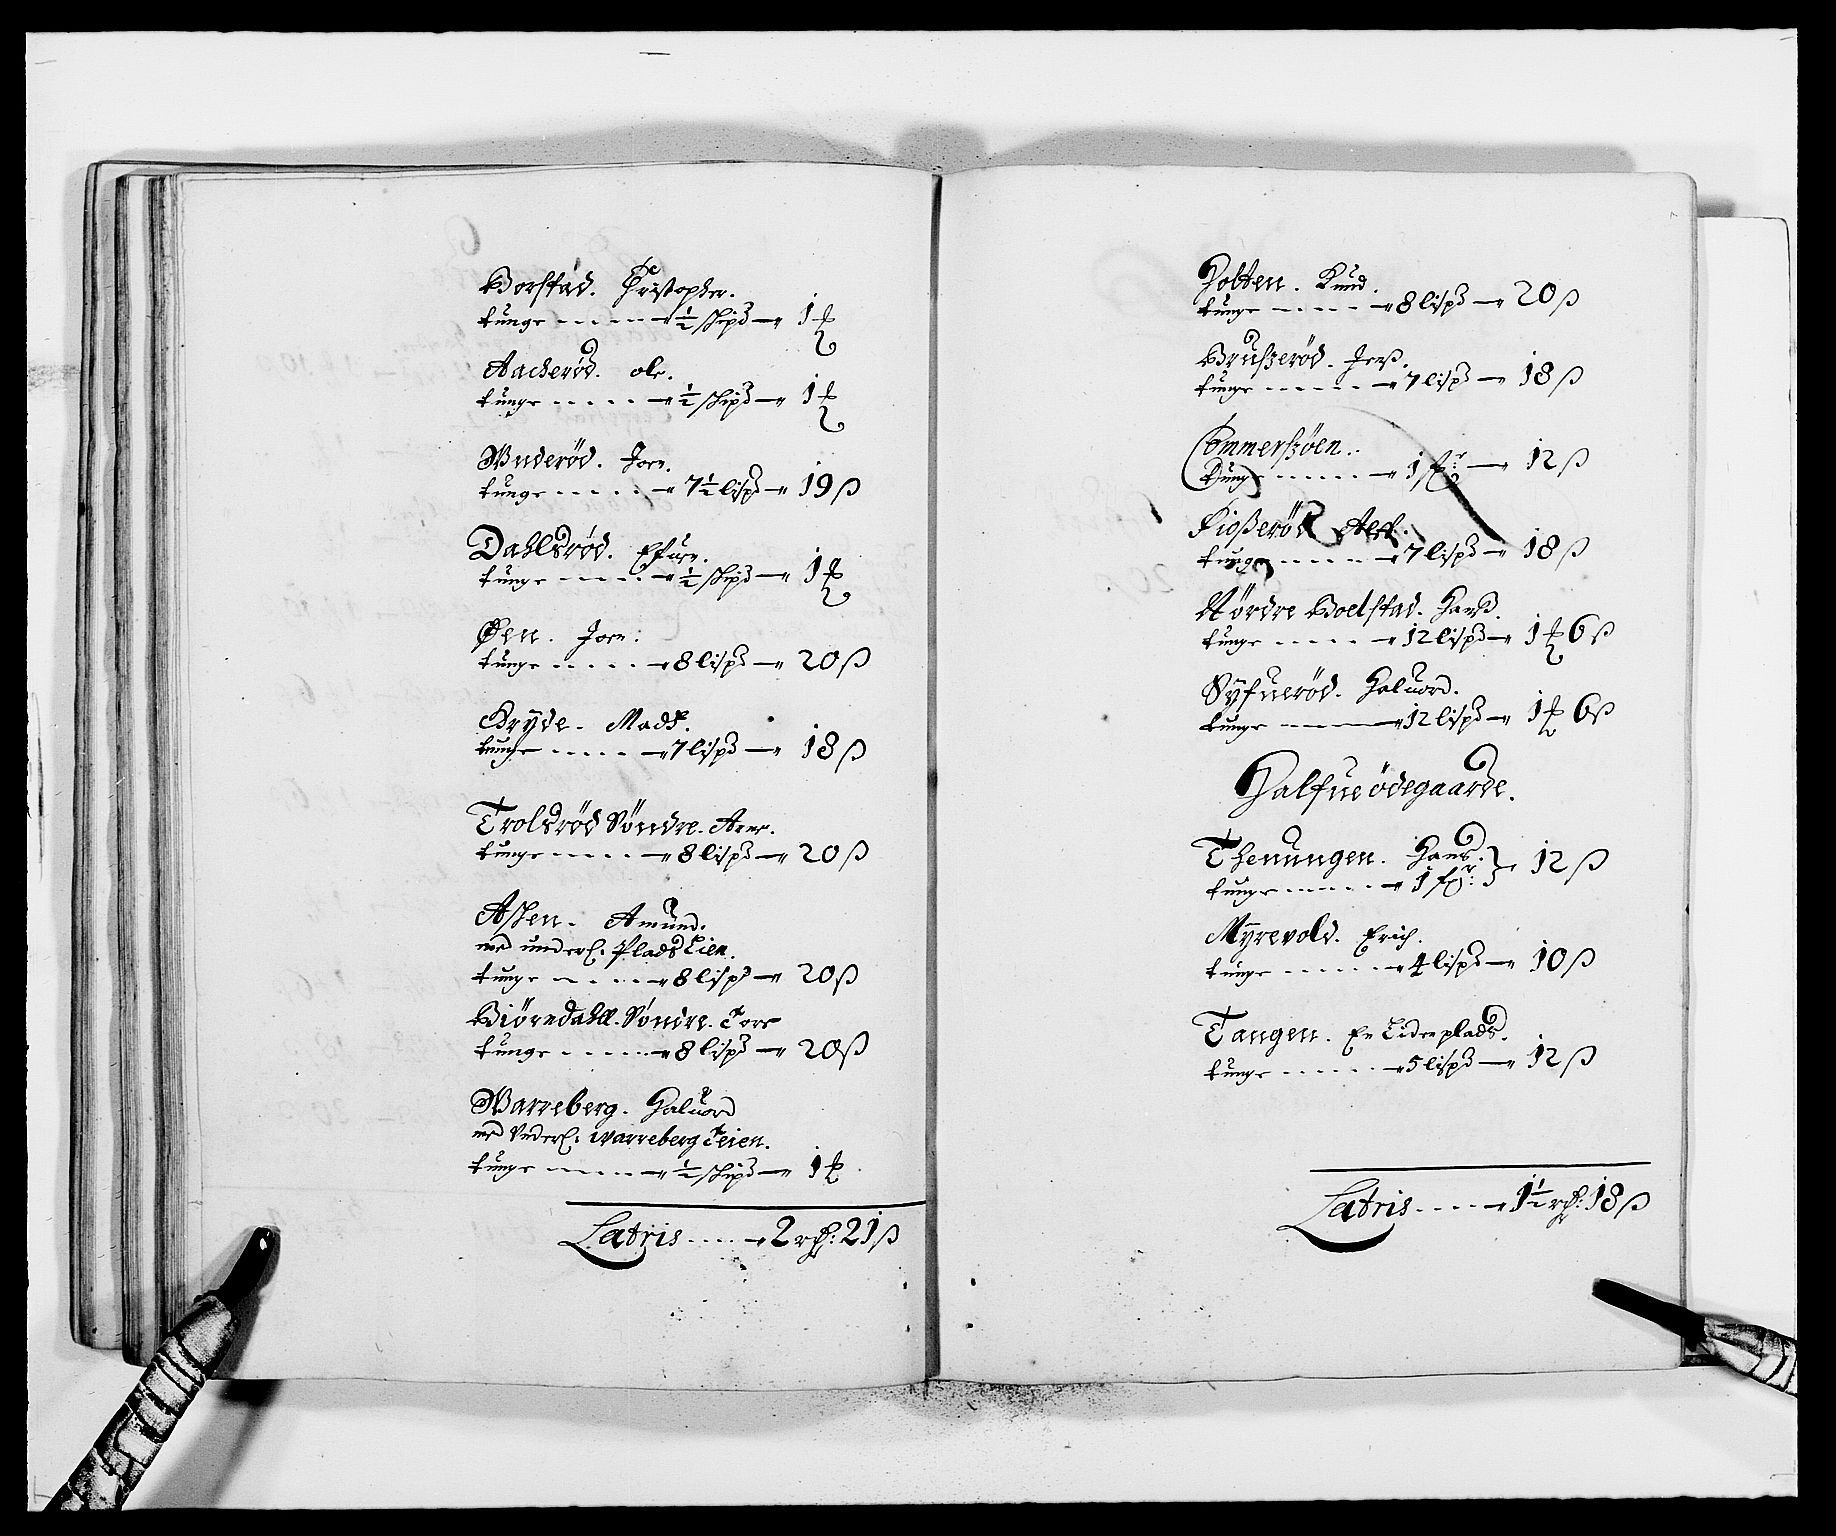 Borstad. Christopher.
tunge - - - - - ½ skipd — 1 ƒ
Aackerød. ole.
tunge - - - - - ½ skipd — 1 ƒ
Wnderød. Joen.
tunge - - - - - 7½ lispd — 19 ß
Dahlsrød. Efuen.
tunge - - - - - ½ skipd — 1 ƒ
Øen. Joen:
tunge - - - - - 8 lispd — 20 ß
Bryde. Mads.
tunge - - - - - 7 lispd — 18 ß
Trolsrød Søndre. Arne.
tunge - - - - - 8 lispd — 20 ß
Asken. Amund.
med underl: Plads Eien.
tunge - - - - - 8 lispd — 20 ß
Biørndahll. Søndre. Tore
tunge - - - - - 8 lispd — 20 ß
Warreberg. Haluord
med Vnderl: warreberg Teien.
tunge - - - - - ½ skipd — 1 ƒ
Latris - - - - 2 rd: 21 ß
Holtten. Knud.
tunge - - - - - 8 lispd — 20 ß
Brußerød. Jenß.
tunge - - - - - 7 lispd — 18 ß
Commerßøen.
tunge - - - - - 1 fr: — 12 ß
Fioßerød
tunge - - - - - 7 lispd — 18 ß
Nørdre Boelstad. Hanß.
tunge - - - - - 12 lispd — 1 ƒ 6 ß
Syfuerød. Haluord.
tunge ——— 12 lispd — 1 ƒ 6 ß
Halfue ødegaarde.
Thenungen. Hans.
tunge - - - - - 1 fr: 12 ß
Myrevold. Erich.
tunge - - - - - 4 lispd — 10 ß
Tangen. En Liden plads.
tunge - - - - - 5 lispd — 12 ß
Latris - - - - 1½ rd: 18 ß